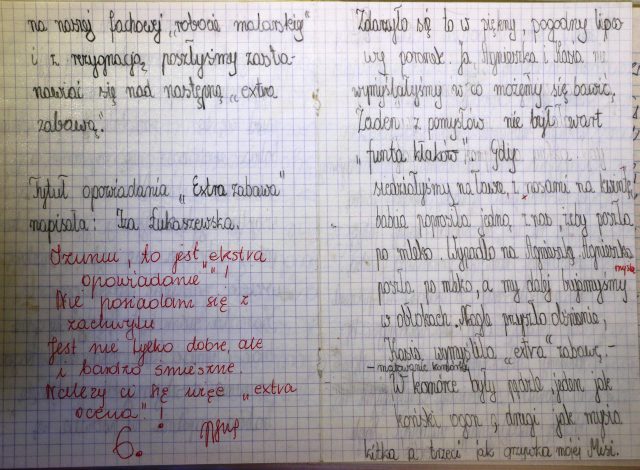 na naszej fachowej „robocie malarskiej"
i z rezygnacją poszłyśmy zasta-
nawiać się nad następną „extra
zabawą."
Tytuł opowiadania „Extra zabawa"
napisała: Iza Łukaszewska.
Izuniu, to jest „ekstra
opowiadanie"!
Nie posiadam się z
zachwytu
Jest nie tylko dobre, ale
i bardzo śmieszne.
Należy ci się więc „extra
ocena"!
6.
Zdarzyło się to w piękny, pogodny lipco-
wy poranek. Ja, Agnieszka i Kasia nie
wymyślałyśmy w co możemy się bawić,
Żaden z pomysłów nie był wart
„funta kłaków". Gdy
siedziałyśmy na tarasie, z nosami na kwintę,
babcia poprosiła jedną z nas, żeby poszła
po mleko. Wypadło na Agnieszkę. Agnieszka
poszła po mleko, a my dalej bujamyśmy
w obłokach. Nagle przyszło olśnienie,
Kasia wymyśliła „extra" zabawę. -
- malowanie komórki
W komórce były pędzle jeden jak
koński ogon, drugi jak mysia
kitka a trzeci jak grzywka mojej Misi.